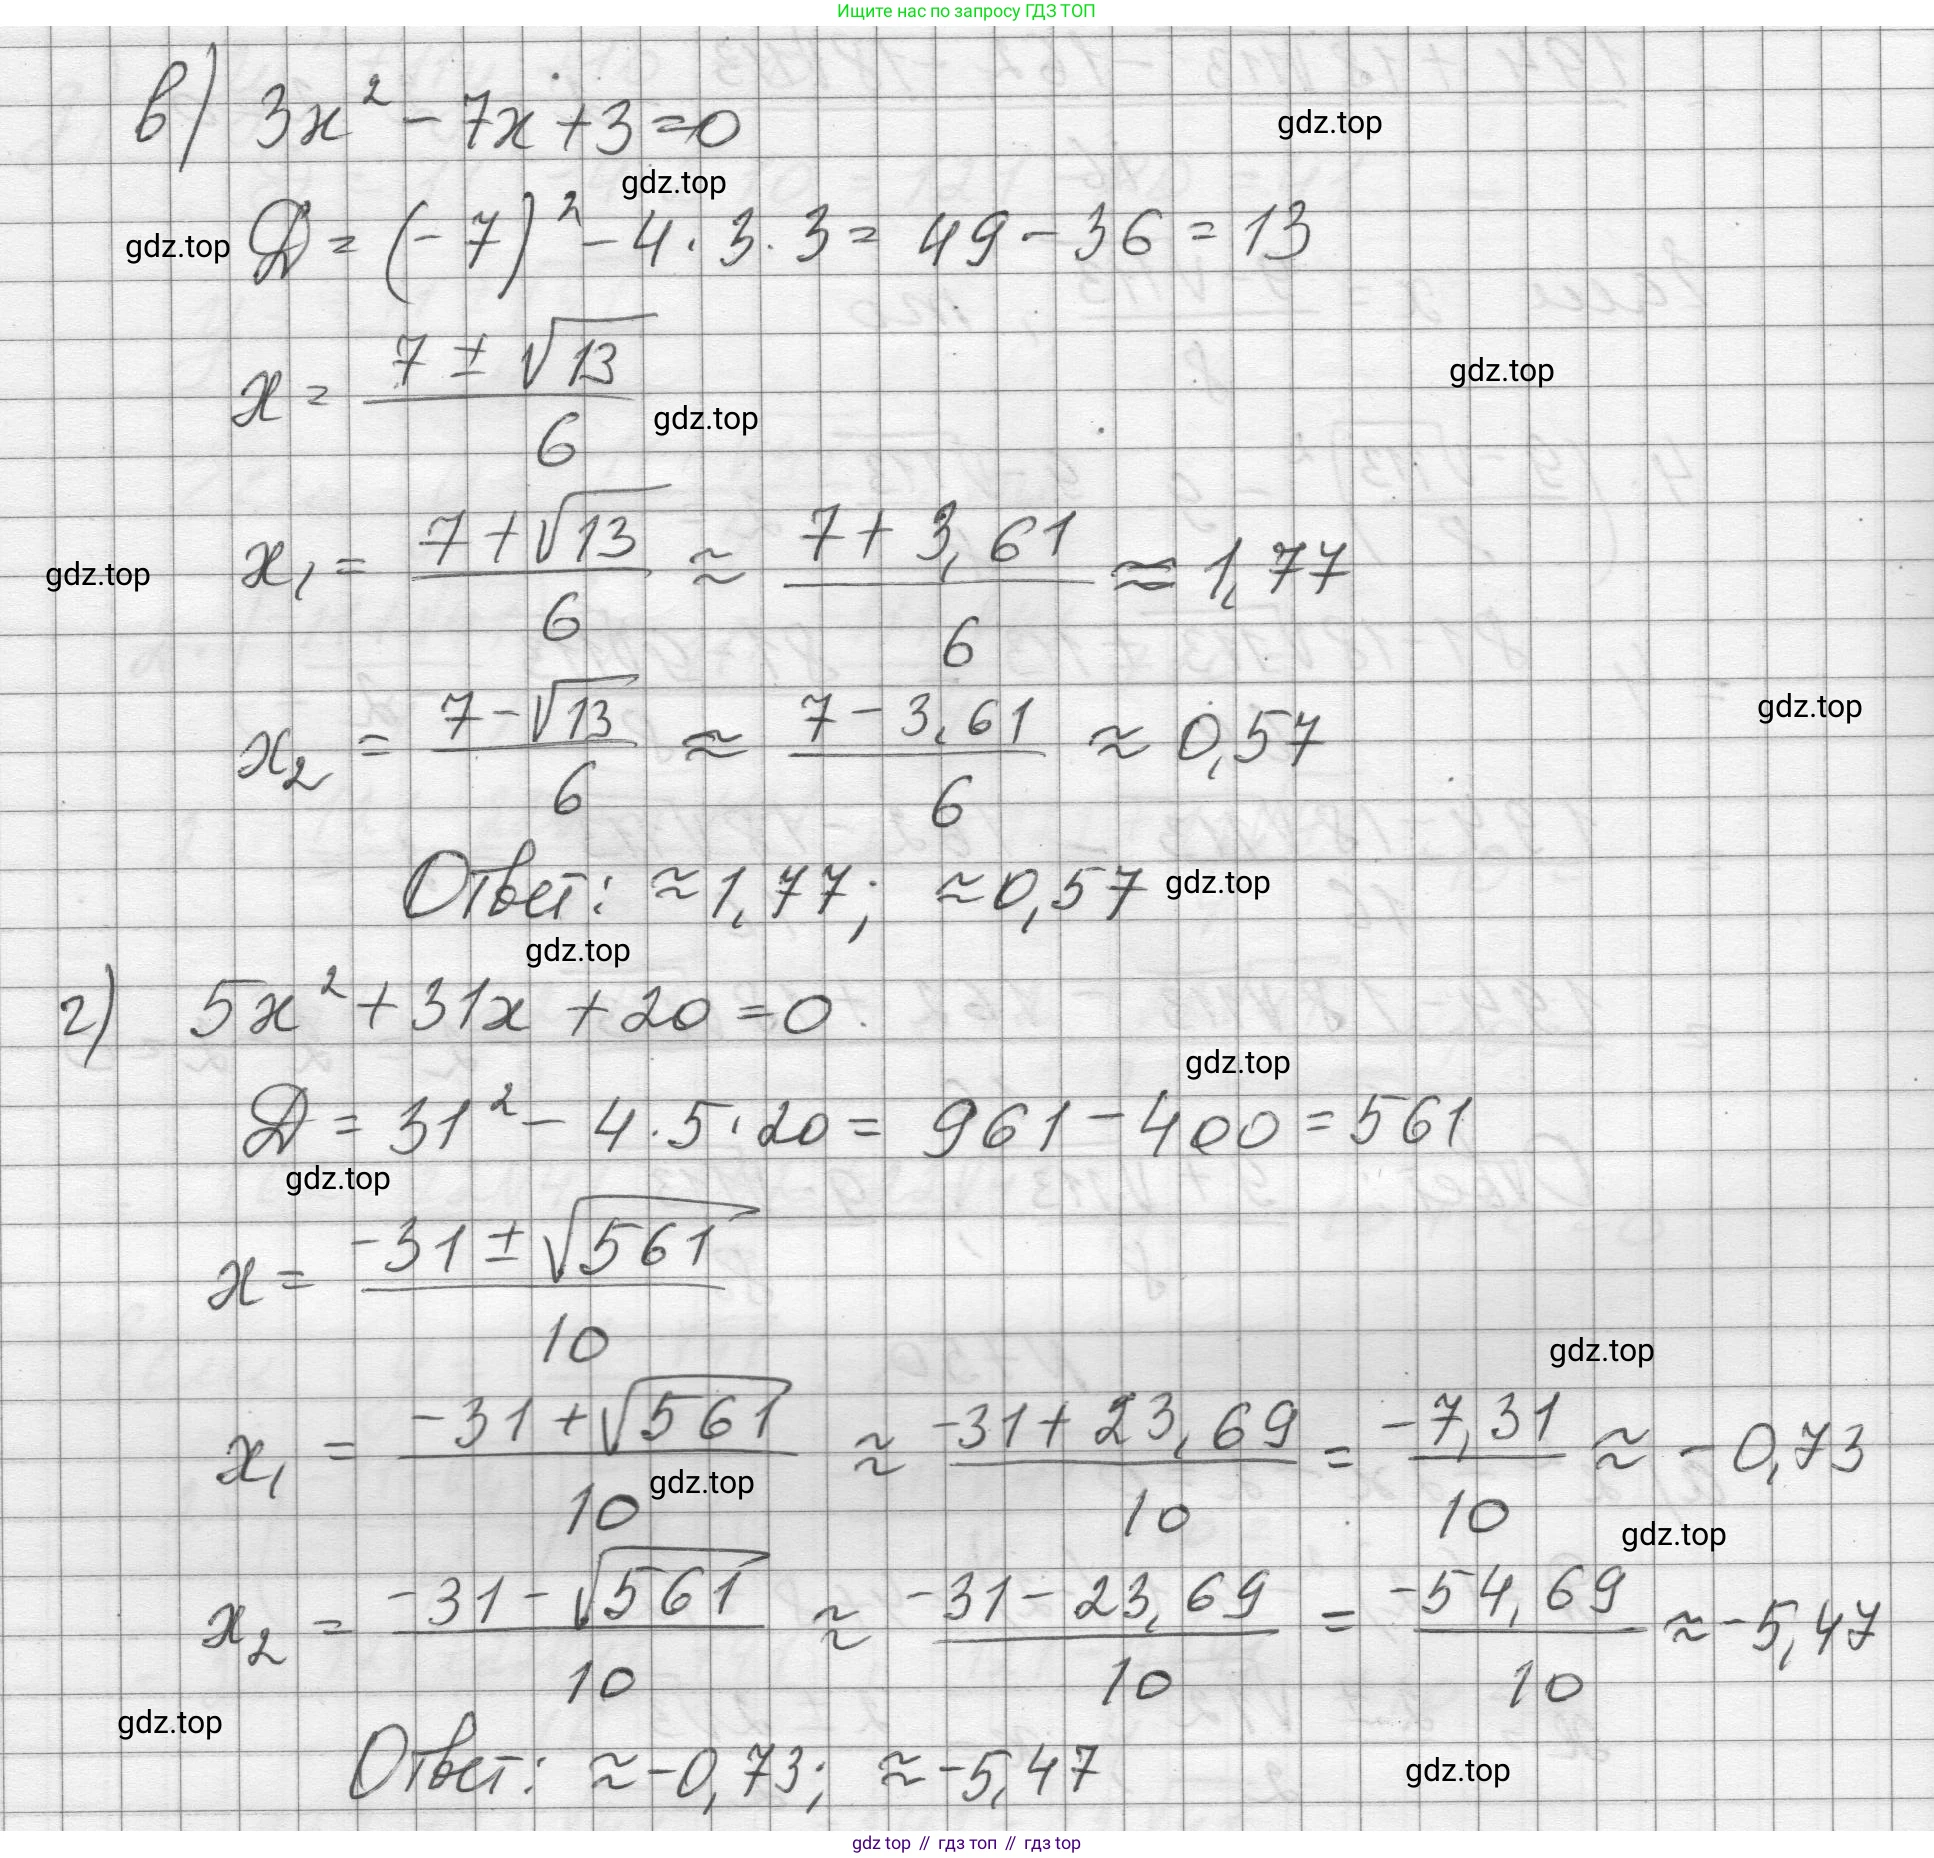 Ищите нас по запросу ГДЗ ТОП
в) 3x² - 7x + 3 = 0
gdz.top
gdz.top
gdz.top
D = (-7)² - 4 · 3 · 3 = 49 - 36 = 13
x = (7 ± √13)/6
gdz.top
gdz.top
gdz.top
x₁ = (7 + √13)/6 ≈ (7 + 3,61)/6 ≈ 1,77
x₂ = (7 - √13)/6 ≈ (7 - 3,61)/6 ≈ 0,57
gdz.top
Ответ: ≈ 1,77; ≈ 0,57
gdz.top
gdz.top
г) 5x² + 31x + 20 = 0
gdz.top
D = 31² - 4 · 5 · 20 = 961 - 400 = 561
gdz.top
x = (-31 ± √561)/10
gdz.top
x₁ = (-31 + √561)/10 ≈ (-31 + 23,69)/10 = (-7,31)/10 ≈ -0,73
gdz.top
gdz.top
x₂ = (-31 - √561)/10 ≈ (-31 - 23,69)/10 = (-54,69)/10 ≈ -5,47
gdz.top
Ответ: ≈ -0,73; ≈ -5,47
gdz.top
gdz top // гдз топ // гдз top